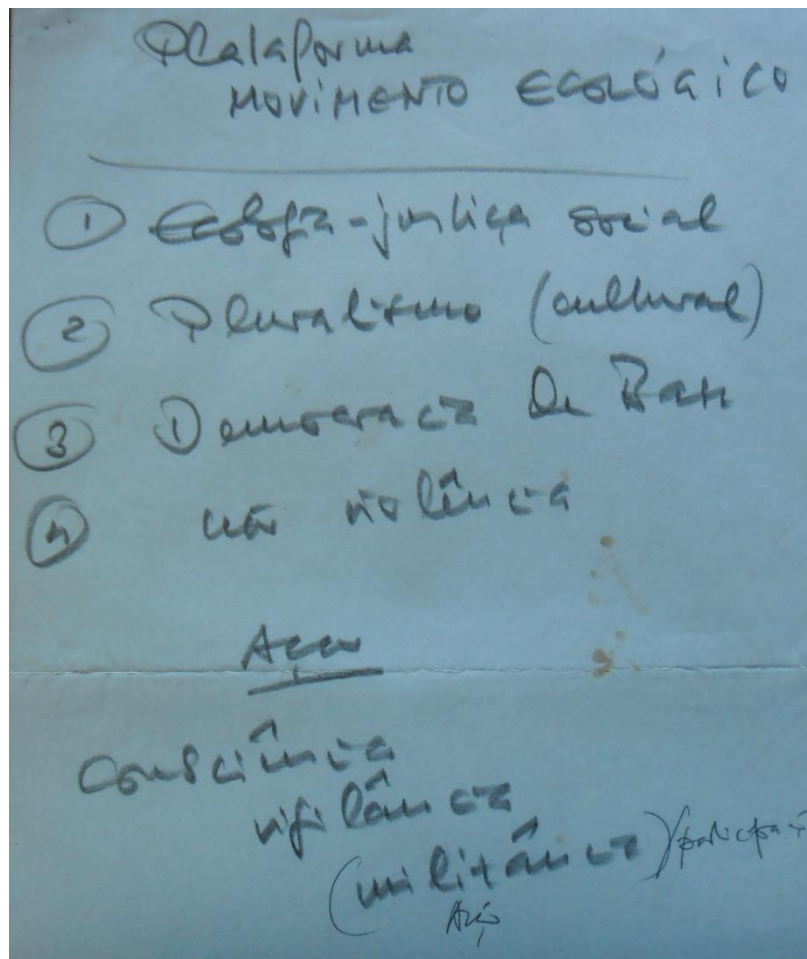 Plataforma
MOVIMENTO ECOLÓGICO
1 Ecologia-justiça social
2 Pluralismo (cultural)
3 Democracia De Base
4 não violência
Ação
Consciência
vigilância
(militância)
Ação